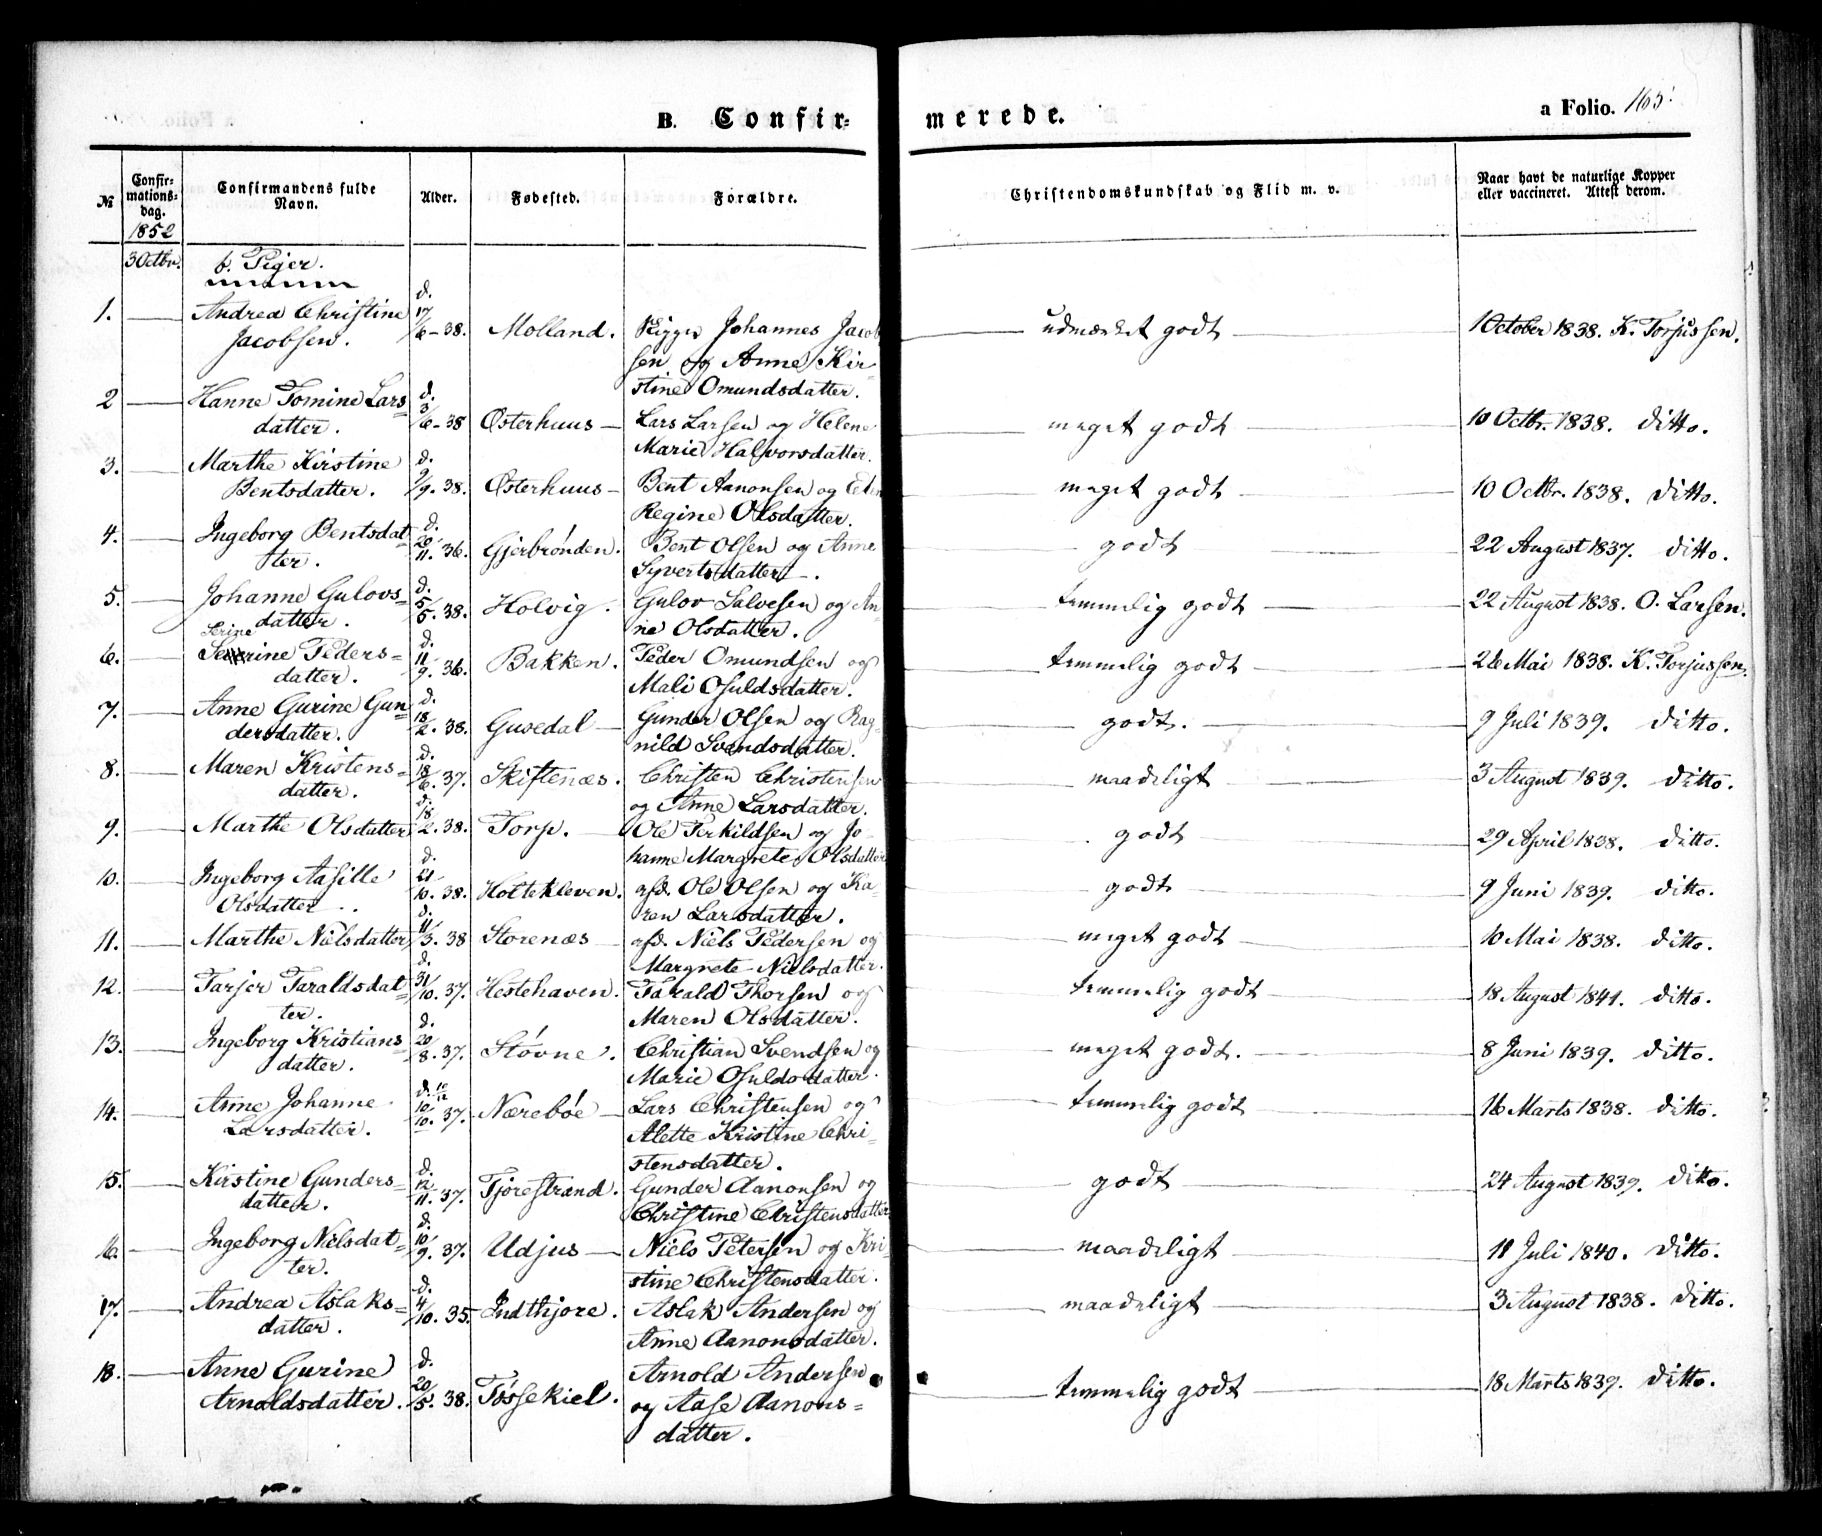 B. Confir-
merede.
a Folio. 165.
№
Confir-
mations-
dag.
1852
Confirmandens fulde
Navn.
Alder.
Fødested.
Forældre.
Christendomskundskab og Flid m. v.
Naar havt de naturlige Kopper
eller vaccineret. Attest derom.
3 Octbr. b. Piger.
1. Andrea Christine Jacobsen. d. 17/6-38. Molland. Rigger Johannes Jacob udmærket godt 1 October 1838. K. Torjussen.
sen og Anne Kir-
stine Omundsdatter.
2 Hanne Tomine Lars= d. 3/6-38 Østerhuus Lars Larsen og Helene meget godt 10 Octbr. 1838. ditto.
datter. Marie Halvorsdatter.
3. Marthe Kirstine d. 9/9. 38. Østerhuus Bent Aanonsen og meget godt 10 Octbr. 1838. ditto.
Bentsdatter. Regine Olsdatter.
4. Ingeborg Bentsdat= d. 20/11. 36. Gjerbrønden. Bent Olsen og Anne godt 22 August 1837. ditto.
ter. Syvertsdatter.
5. Johanne Gulovs= d. 5/5. 38. Holvig. Gulov Salvesen og An= temmelig godt 22 August 1838. O. Larsen.
datter. ne Olsdatter.
Serine
6. Peders= d. 11/9. 36. Bakken. Peder Omundsen og temmelig godt 26 Mai 1838. K. Torjussen.
datter. Mali Osuldsdatter.
7. Anne Gurine Gun= d. 18/2. 38. Gusedal Gunder Olsen og Rag= godt. 9 Juli 1839. ditto.
dersdatter. nild Svendsdatter.
8. Maren Kristens= d. 18/6. 37. Skiftenæs. Christen Christensen maadeligt 3 August 1839. ditto.
datter. og Anne Larsdatter.
9. Marthe Olsdatter d. 18/2. 38. Torp. Ole Terkildsen og Jo= godt 29 April 1838. ditto.
hanne Margrete Olsdatter
10. Ingeborg Aasille d. 21/10. 38. Holtekleven. afd. Ole Olsen og Ka= godt 9 Juni 1839. ditto.
Olsdatter. ren Larsdatter.
11. Marthe Nielsdatter d. 11/3. 38 Storenæs afd. Niels Pedersen og meget godt 10 Mai 1838. ditto.
Margrete Nielsdatter.
12. Tarjer Taraldsdat= d. 31/10. 37. Hestehaven. Tarald Thorsen og temmelig godt 18 August 1841. ditto.
ter. Maren Olsdatter.
13. Ingeborg Kristians= d. 20/8. 37. Støvne. Christian Svendsen og meget godt. 8 Juni 1839. ditto.
datter. Marie Osuldsdatter.
14. Anne Johanne d. 10/10. 37. Nærebøe Lars Christensen og temmelig godt 16 Marts 1838. ditto.
Larsdatter. Alette Kristine Chri=
stensdatter.
15. Kirstine Gunders= d. 12/11. 37. Tjorestrand. Gunder Aanonsen og godt 24 August 1839. ditto.
datter. Christine Christensdatter
16. Ingeborg Nielsdat= d. 10/9. 37. Udjus Niels Petersen og Kri= maadeligt 11 Juli 1840. ditto.
ter. stine Christensdatter.
17. Andrea Aslaks= d. 4/10. 35. Indthjore. Aslak Andersen og maadeligt 3 August 1838. ditto.
datter. Anne Aanonsdatter.
18. Anne Gurine d. 20/5. 38. Tøssekiel. Arnold Andersen temmelig godt 18 Marts 1839. ditto.
Arnoldsdatter. og Aase Aanons=
datter.